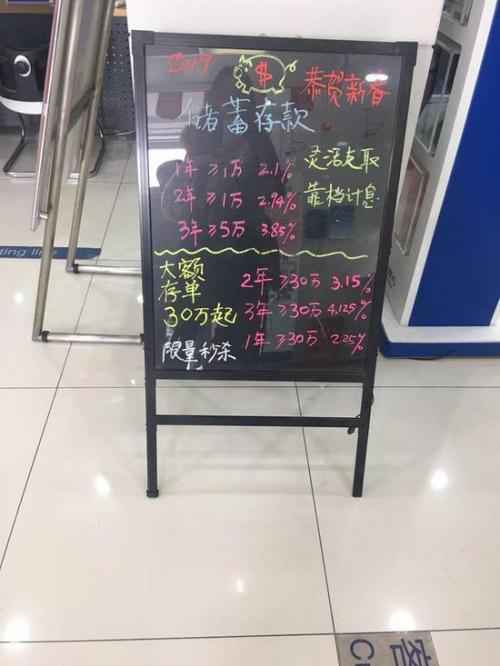 2019
$
恭贺新春
储蓄存款
1年 ≥1万 2.1%
2年 ≥1万 2.94%
3年 ≥5万 3.85%
灵活支取
靠档计息
大额
存单
30万起
限量秒杀
2年 ≥30万 3.15%
3年 ≥30万 4.125%
1年 ≥30万 2.25%
ting line
客
C